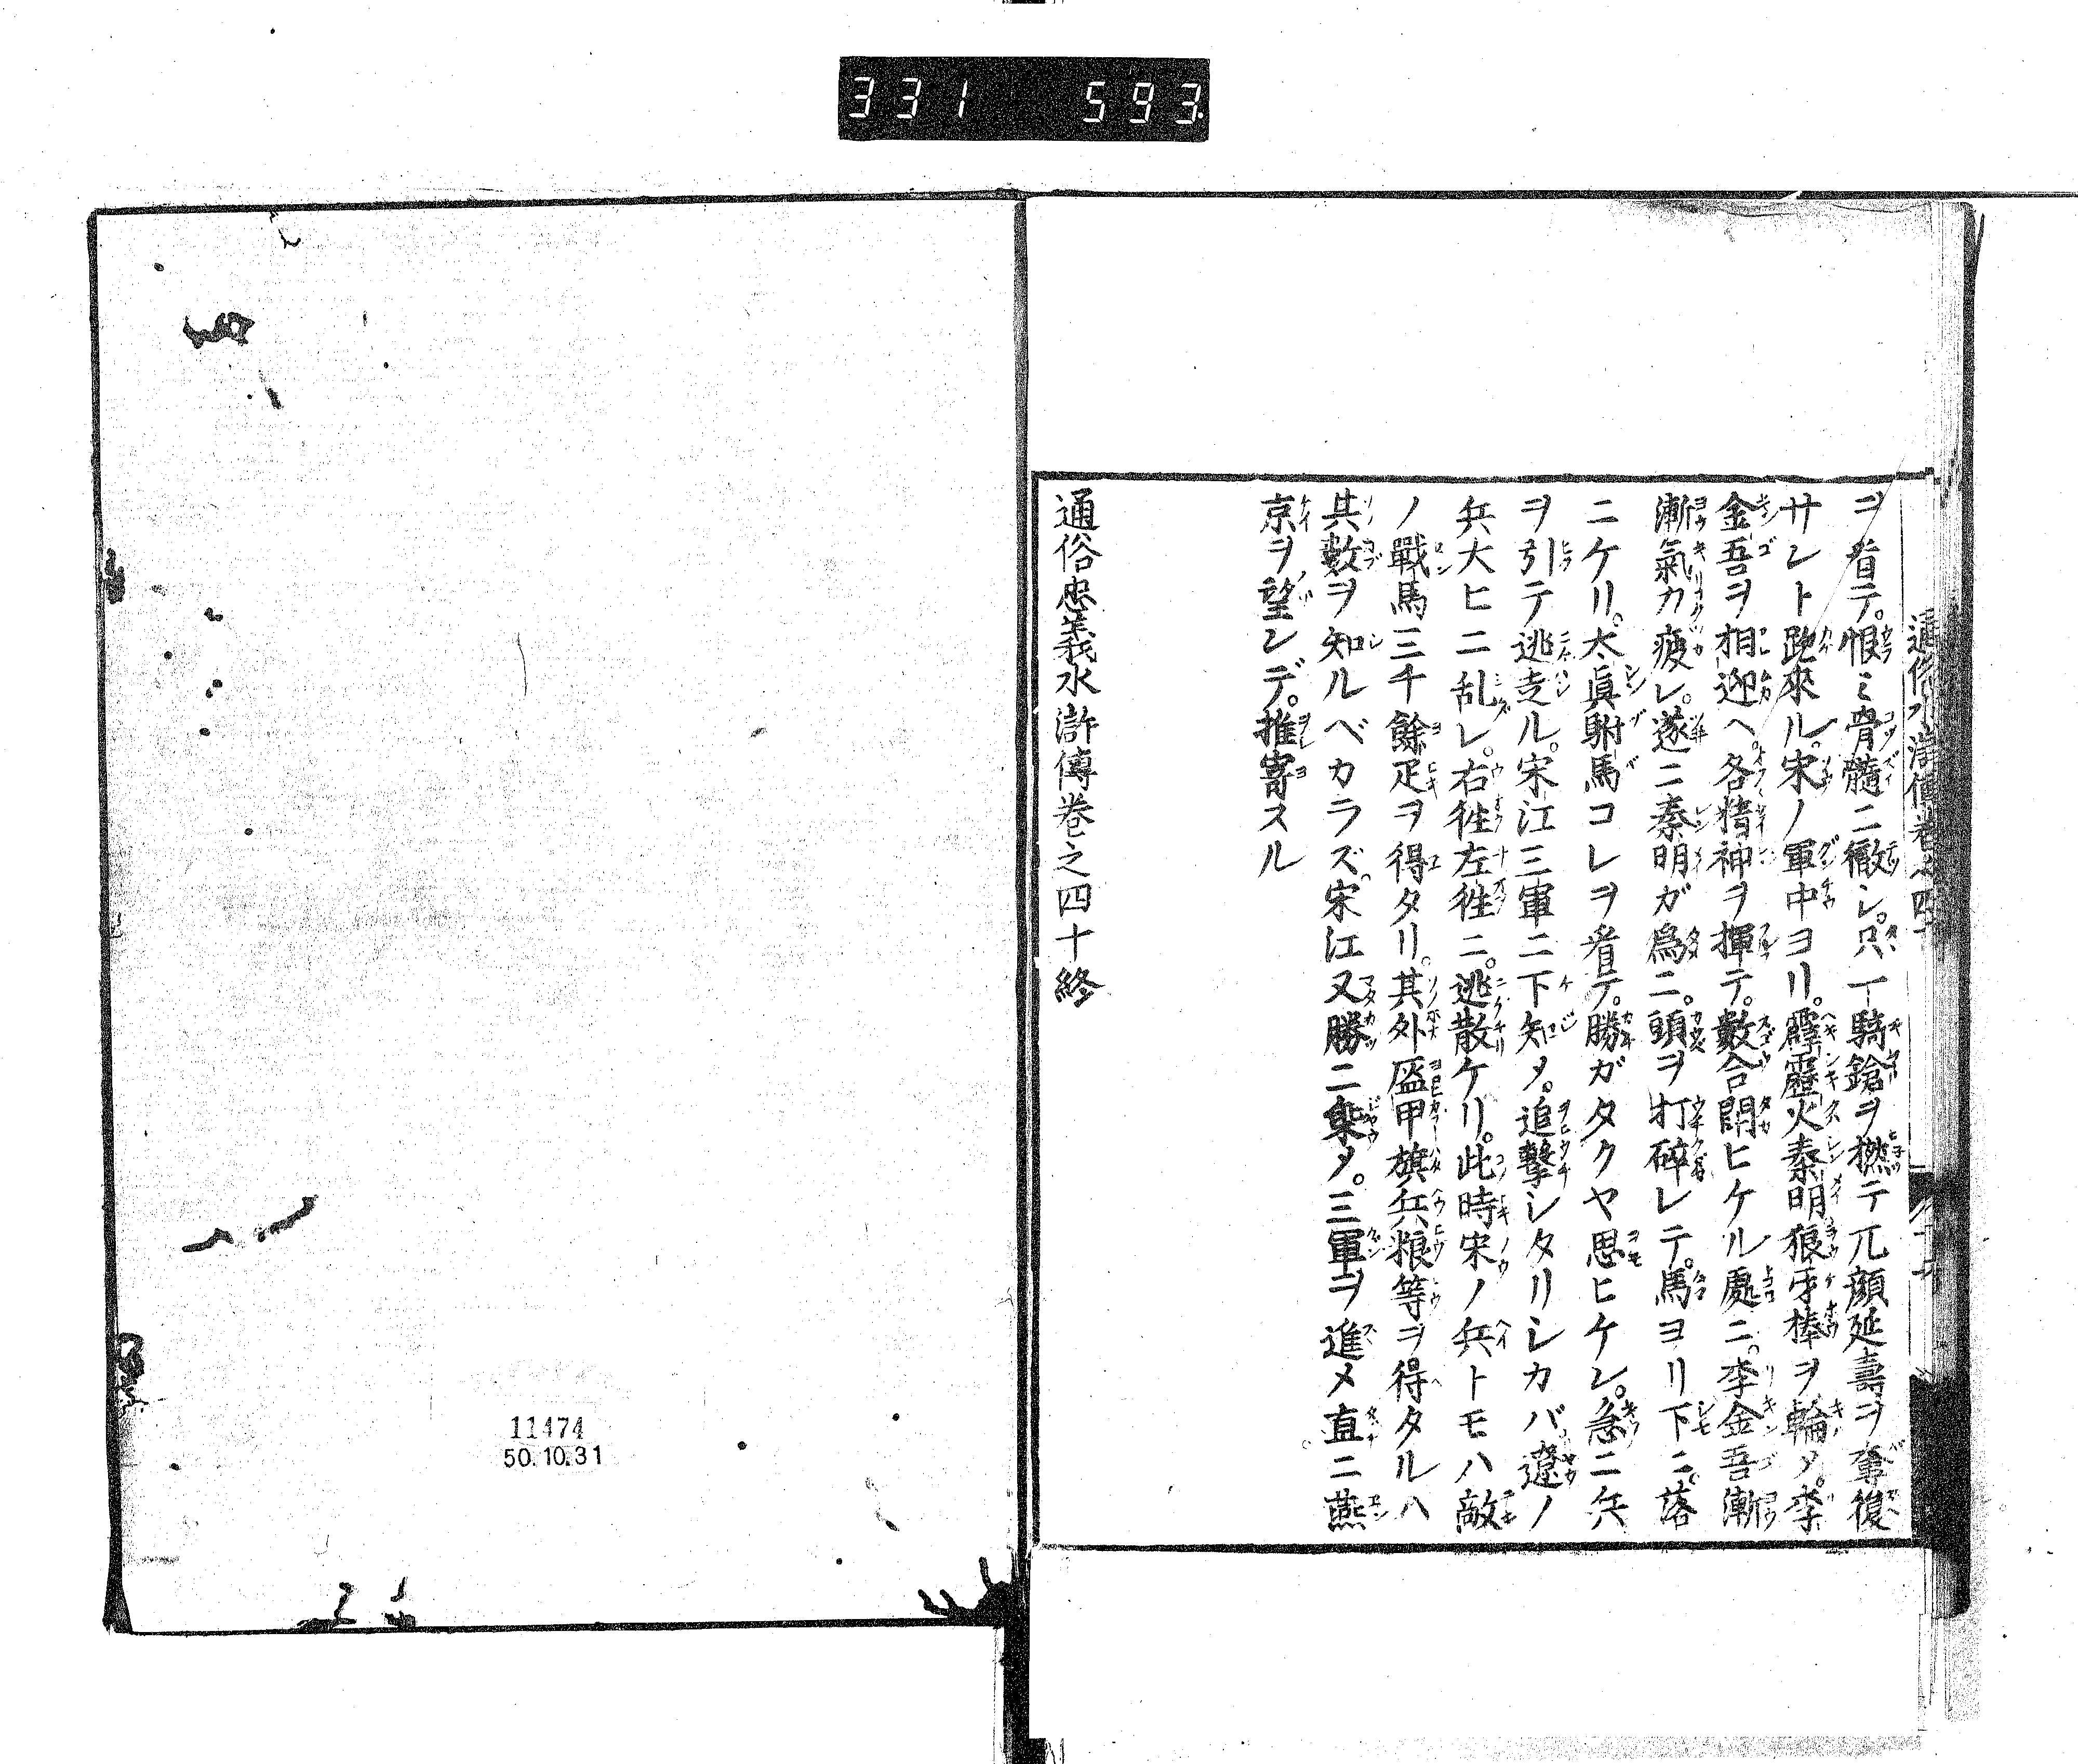 331 593
通俗水滸傳卷之四十
ヲ看テ。恨ミ骨髓ニ徹シ。只一騎鎗ヲ撚テ兀顔延壽ヲ奪復
サレト跑來ル。宋ノ軍中ヨリ。霹靂火秦明狼牙棒ヲ輪メ。李
金吾ヲ相迎ヘ。各精神ヲ揮テ。數合鬪ヒケル處ニ。李金吾漸
漸氣力疲レ。遂ニ秦明ガ爲ニ。頭ヲ打碎レテ。馬ヨリ下ニ。落
ニケリ。太眞駙馬コレヲ看テ。勝ガタクヤ思ヒケレ。急ニ兵
ヲ引テ逃走ル。宋江三軍ニ下知メ。追撃シタリシカバ。遼ノ
兵大ヒニ乱レ。右徃左徃ニ。逃散ケリ。此時宋ノ兵トモハ敵
ノ戰馬三千餘疋ヲ得タリ。其外盔甲旗兵粮等ヲ得タルハ
其數ヲ知ルベカラズ。宋江又勝ニ乗メ。三軍ヲ進メ直ニ燕
京ヲ望レデ。推寄スル
通俗忠義水滸傳卷之四十終
11474
50.10.31